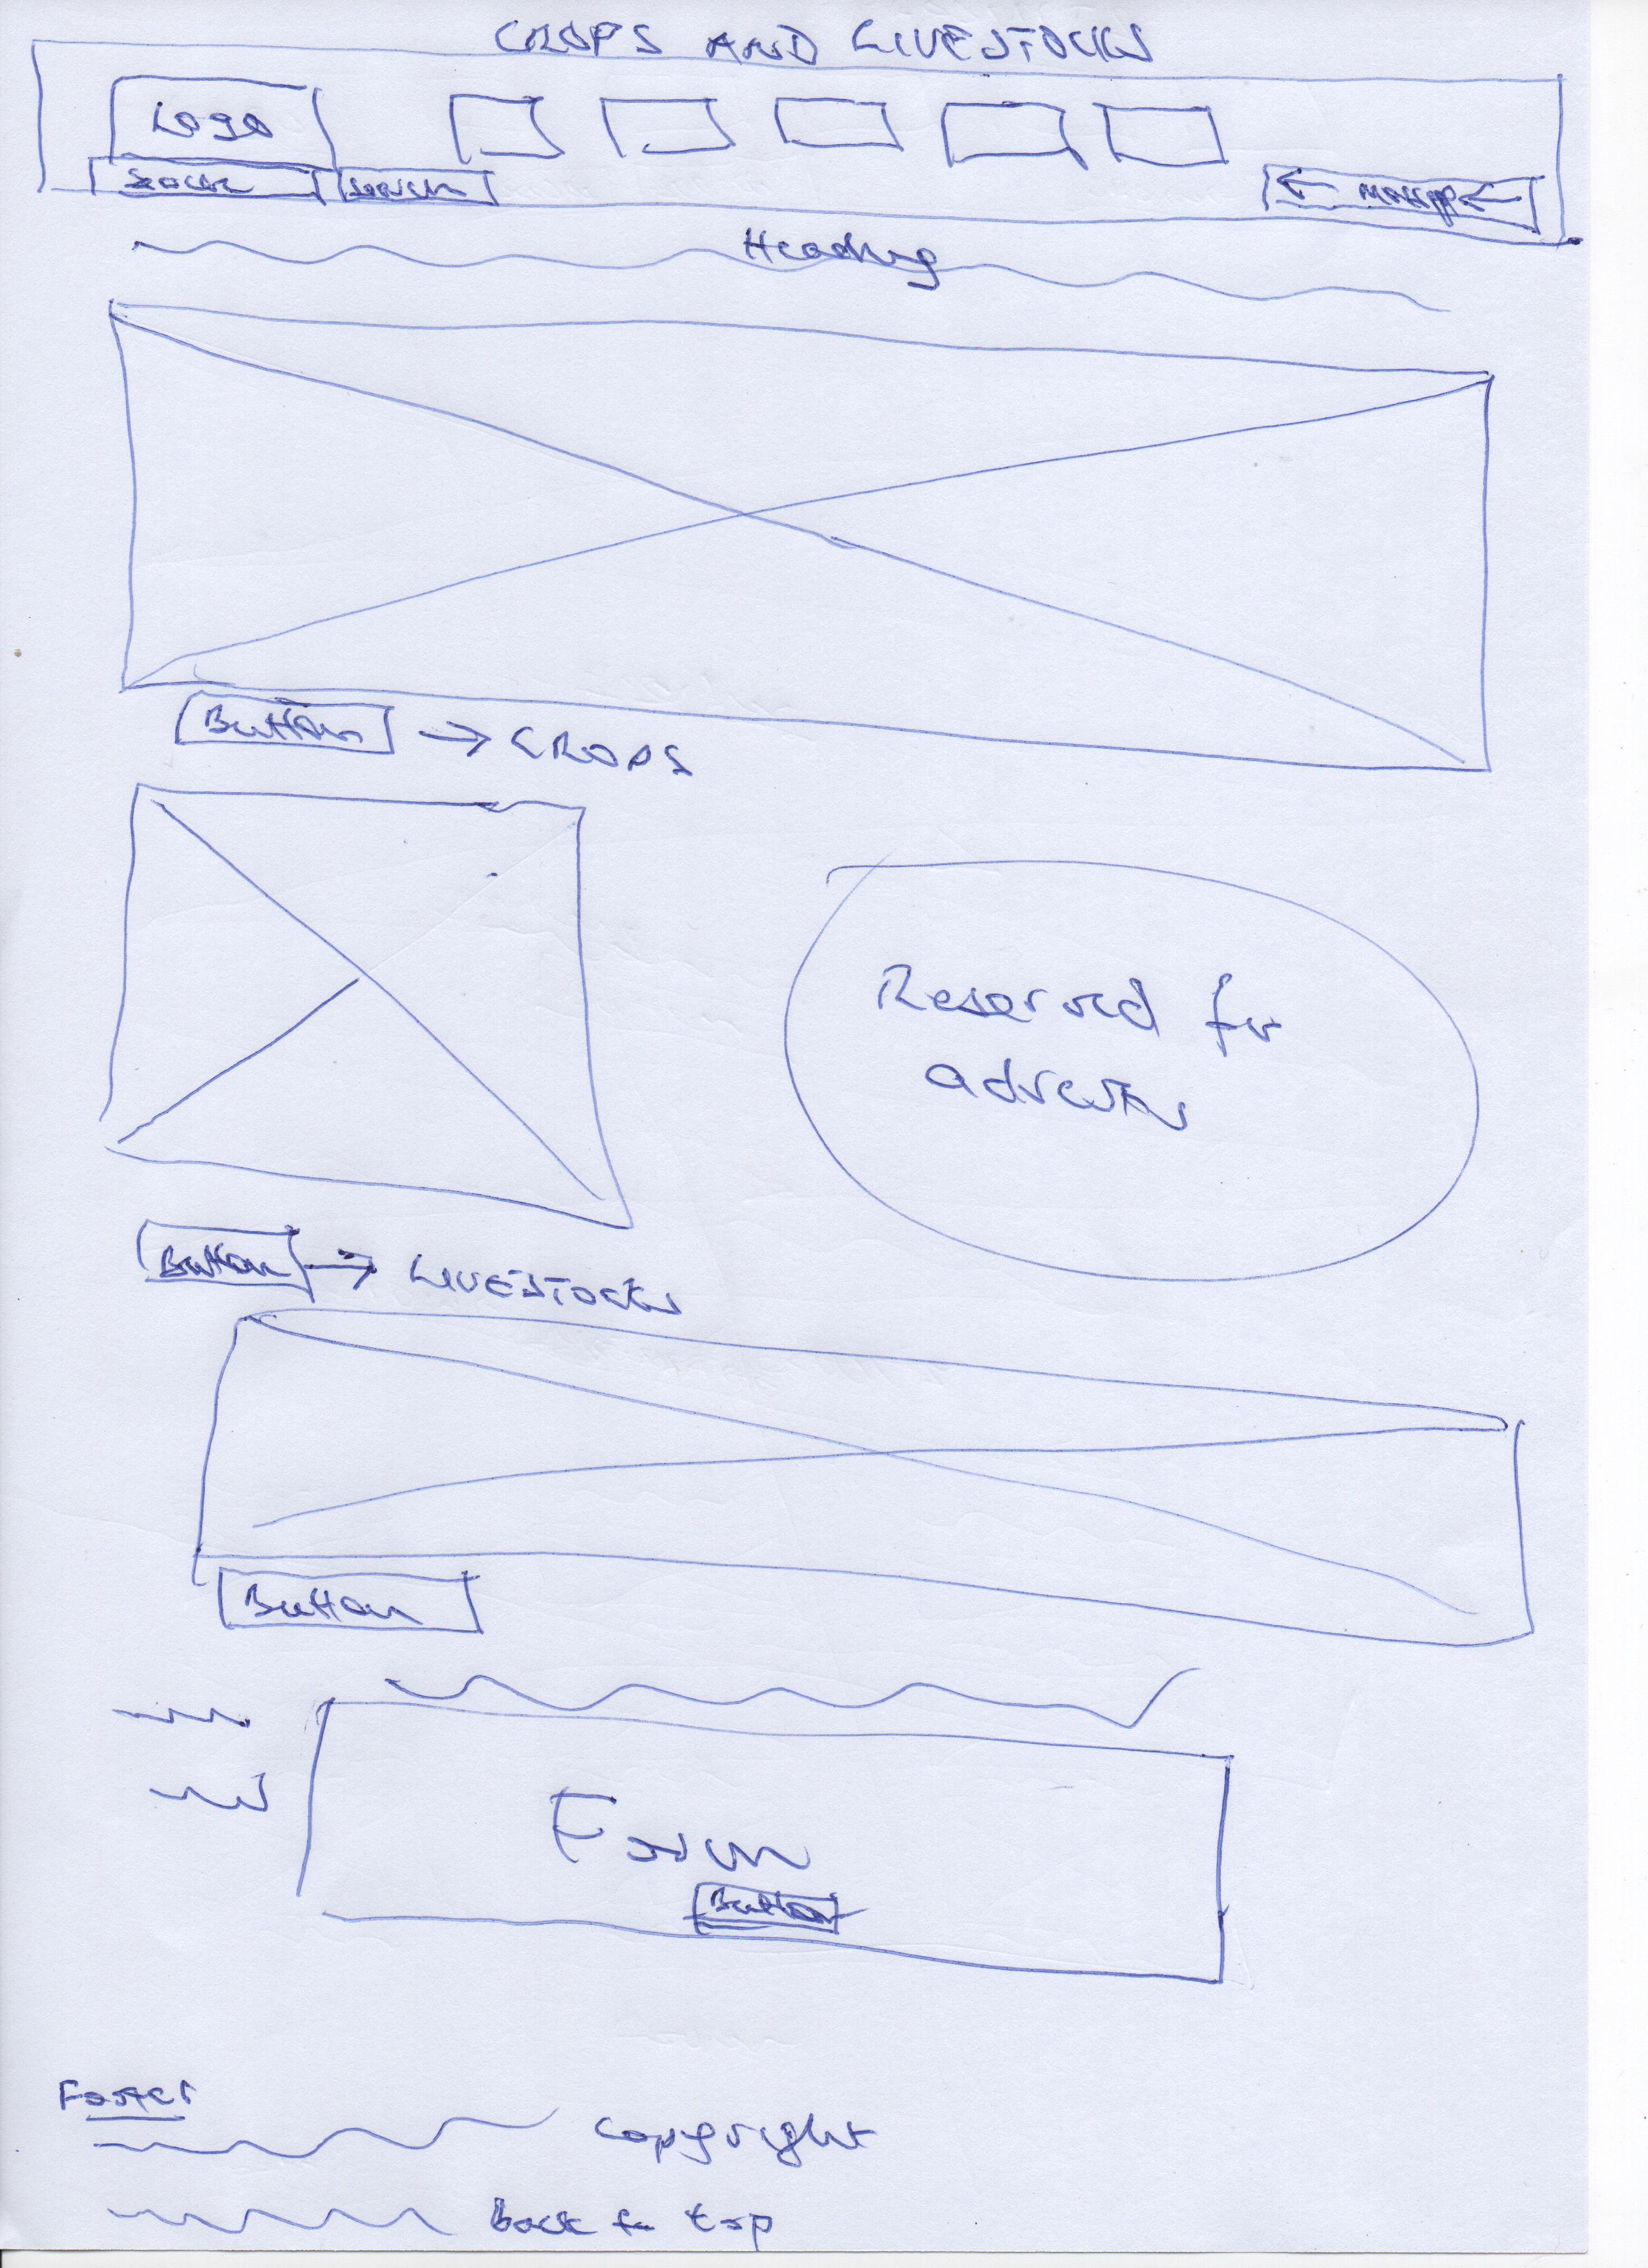 CROPS AND LIVESTOCKS
Logo
search
Heading
Button → CROPS
Reserved for
adverts
Button → LIVESTOCKS
Button
Form
Button
Footer
copyright
Back to top